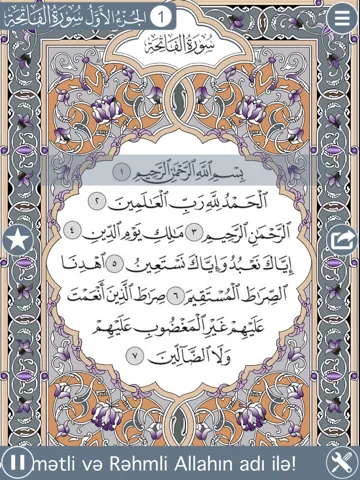 الجزء الأول سورة الفاتحة
1
سورة الفاتحة
بِسْمِ ٱللَّهِ ٱلرَّحْمَٰنِ ٱلرَّحِيمِ ١
ٱلْحَمْدُ لِلَّهِ رَبِّ ٱلْعَٰلَمِينَ ٢
ٱلرَّحْمَٰنِ ٱلرَّحِيمِ ٣ مَٰلِكِ يَوْمِ ٱلدِّينِ ٤
إِيَّاكَ نَعْبُدُ وَإِيَّاكَ نَسْتَعِينُ ٥ ٱهْدِنَا
ٱلصِّرَٰطَ ٱلْمُسْتَقِيمَ ٦ صِرَٰطَ ٱلَّذِينَ أَنْعَمْتَ
عَلَيْهِمْ غَيْرِ ٱلْمَغْضُوبِ عَلَيْهِمْ
وَلَا ٱلضَّآلِّينَ ٧
mətli və Rəhmli Allahın adı ilə!